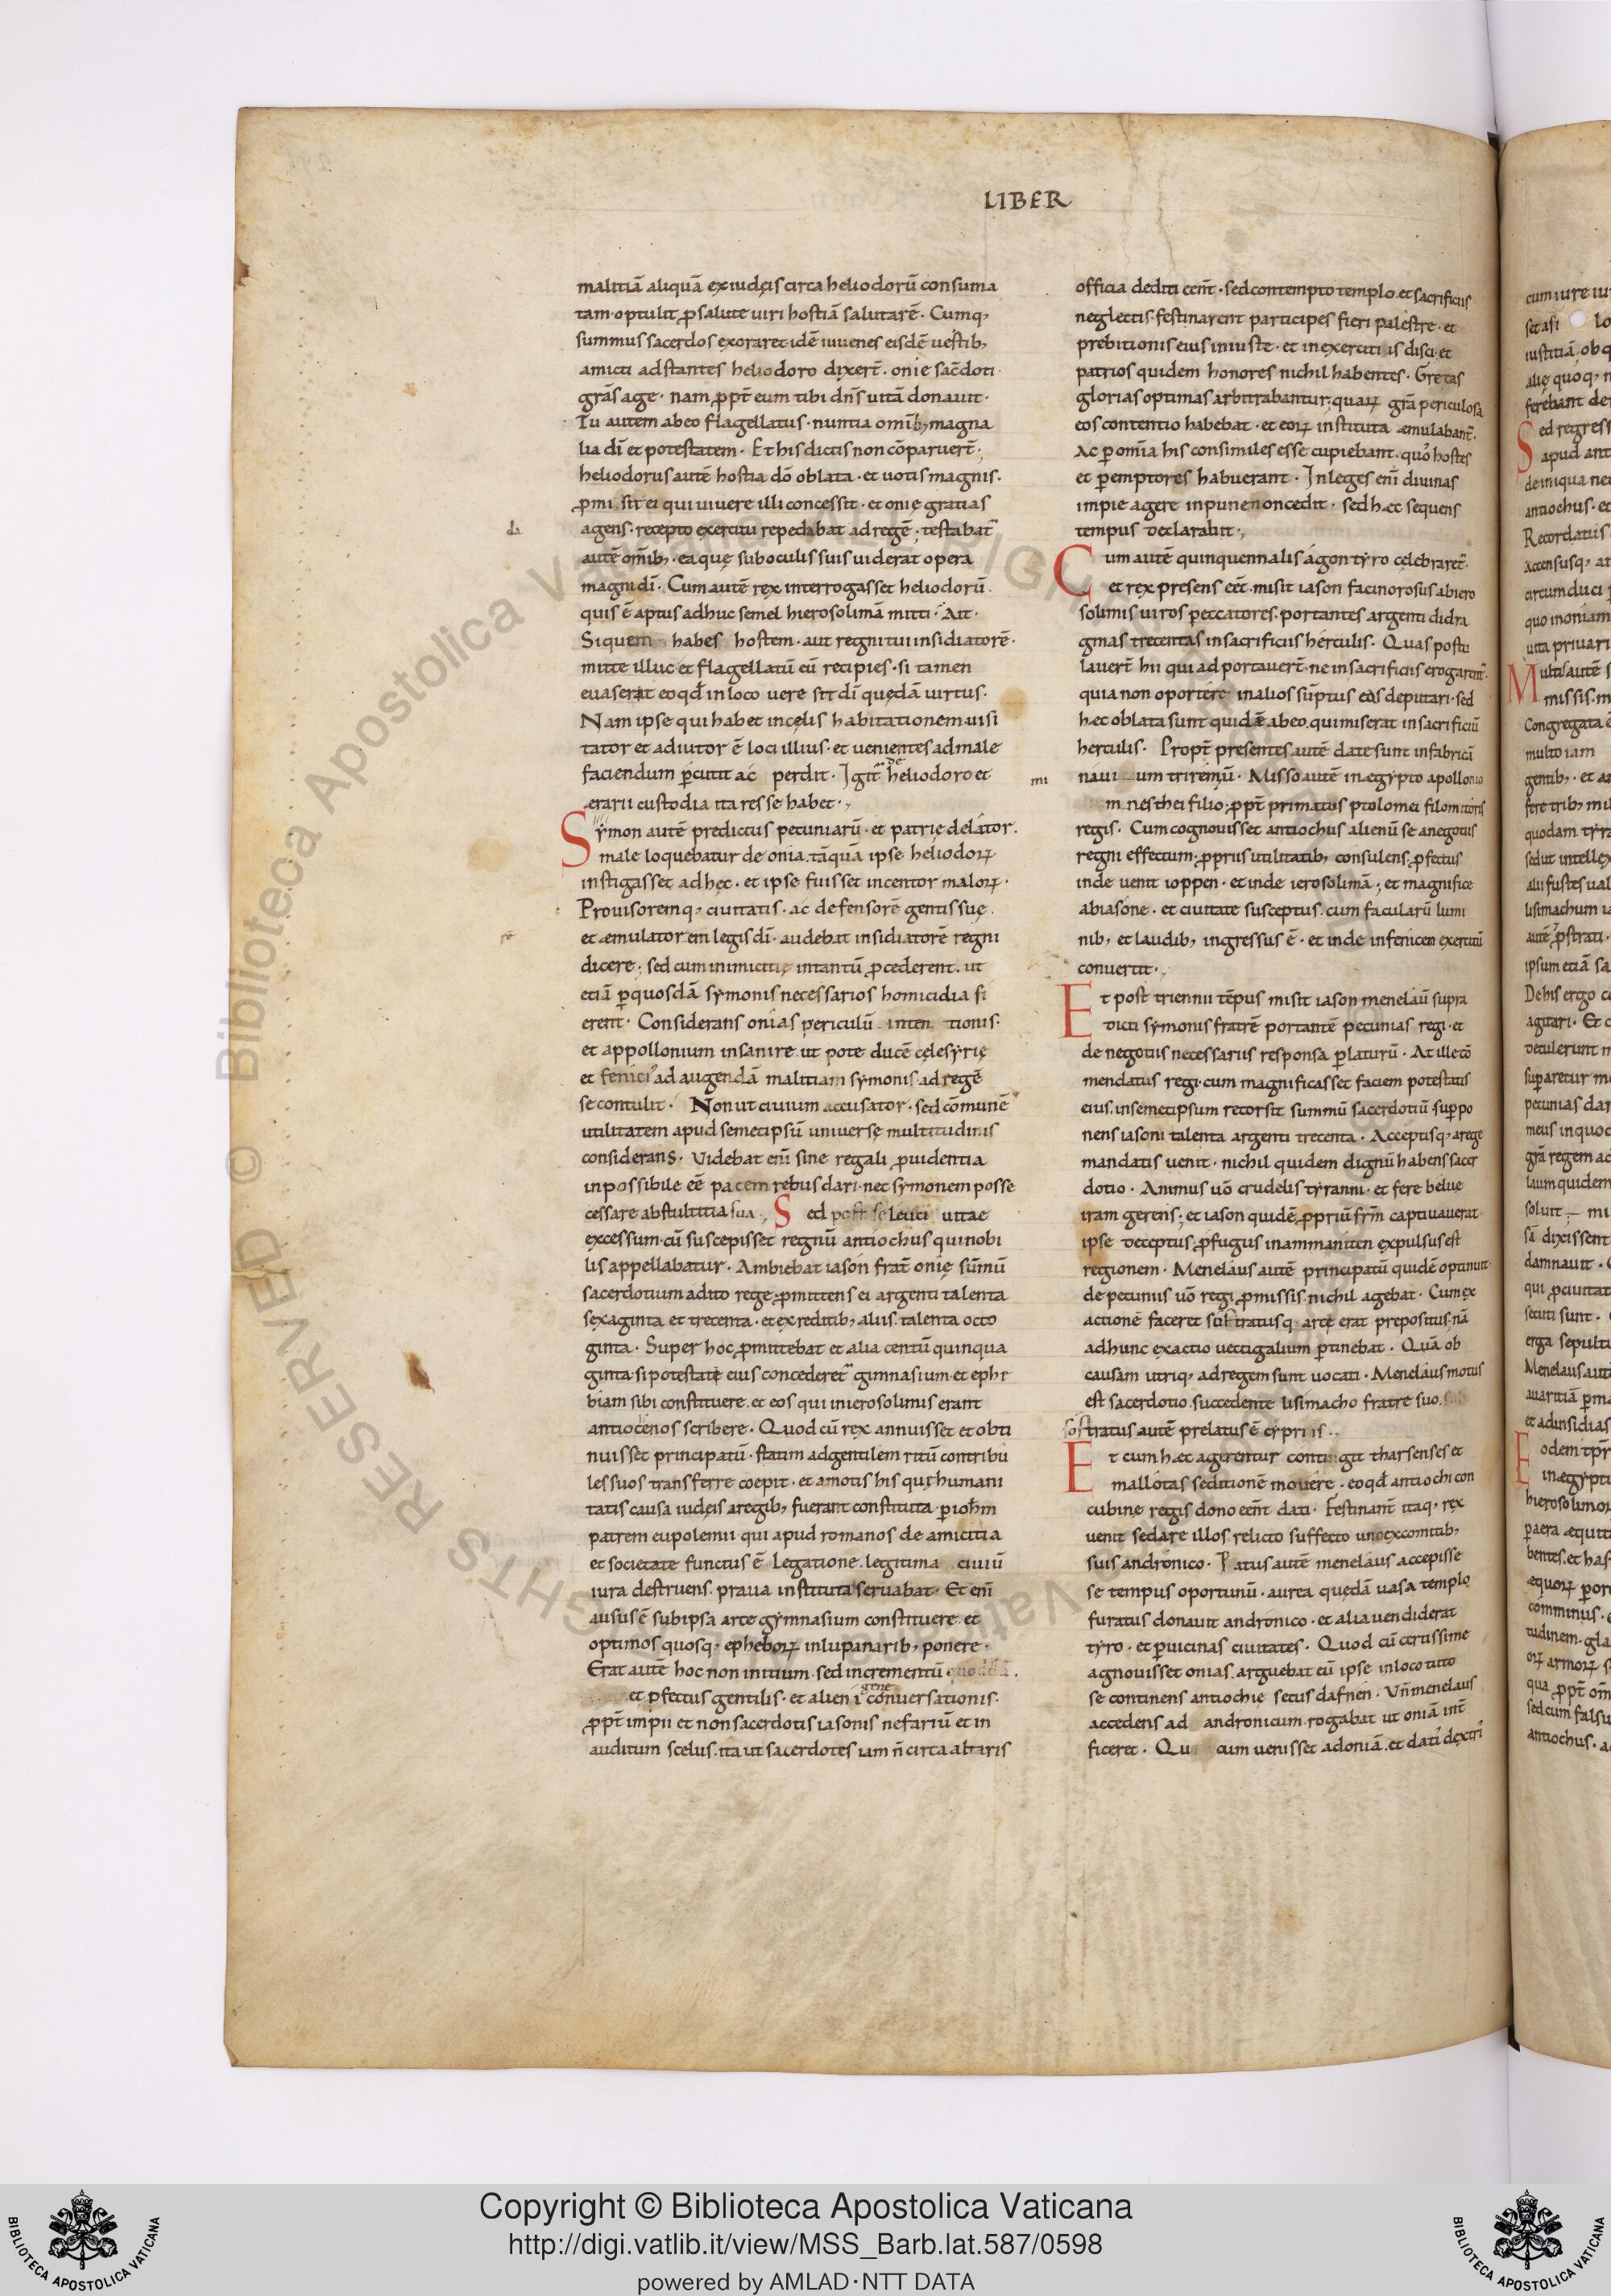 LIBER
malitiã aliquã ex iudęis circa heliodorũ consuma
tam· optulit p̱ salute uiri hostiã salutarẽ· Cumq;
summus sacerdos exoraret idẽ iuuenes eisdẽ uestib;
amicti adstantes heliodoro dixer̃t· onie sac̃doti·
grãs age· nam p̱pt̃ eum tibi dñs uitã donauit·
Tu autem ab eo flagellatus· nuntia omñib; magna
lia dĩ et potestatem· Et his dictis non cõparuer̃t·;
heliodorus autẽ hostia dõ oblata· et uotis magnis·
p̱mi· sit ei qui uiuere illi concessit· et onię gratias
da
agens· recepto exercitu repedabat ad regẽ; testabat̃
autẽ omñib;· ea quę sub oculis suis uiderat opera
magni dĩ· Cum autẽ rex interrogasset heliodorũ·
quis ẽ aptus adhuc semel hierosolimã mitti· Ait·
Siquem habes hostem· aut regni tui insidiatorẽ·
mitte illuc et flagellatũ eũ recipies· si tamen
euaserit eo qđ in loco uere sit dĩ quędã uirtus·
Nam ipse qui habet in cęlis habitationem uisi
tator et adiutor ẽ loci illius· et uenientes ad male
faciendum p̱cutit ac perdit· Igit̃ de heliodoro et
mi
erarii custodia ita res se habet·;
Symon autẽ predictus pecuniarũ· et patrię delator·
male loquebatur de onia. tãquã ipse heliodoꝝ
instigasset ad hęc· et ipse fuisset incentor maloꝝ·
Prouisoremq; ciuitatis· ac defensorẽ gentis suę·
et æmulatorem legis dĩ· audebat insidiatorẽ regni
dicere; sed cum inimicitię in tantũ p̱cederent· ut
etiã p̱ quosdã symonis necessarios homicidia fi
erent· Considerans onias periculũ inten tionis·
et appollonium insanire. ut pote ducẽ cęlesyrię
et fenici ad augendã malitiam symonis ad regẽ
se contulit· Non ut ciuium accusator· sed cõmunẽ
utilitatem apud semetipsũ uniuersę multitudinis
considerans· Videbat enĩ sine regali p̱uidentia
inpossibile eẽ pacem rebus dari· nec symonem posse
cessare ab stultitia sua·; Sed post seleuci uitae
excessum· cũ suscepisset regnũ antiochus qui nobi
lis appellabatur· Ambiebat iason frat̃ onię sũmũ
sacerdotium adito rege. p̱mittens ei argenti talenta
sexaginta et trecenta· et ex reditib; aliis. talenta octo
ginta· Super hoc p̱mittebat et alia centũ quinqua
ginta. si potestate eius concederet̃ gimnasium· et ephe
biam sibi constituere. et eos qui in ierosolimis erant
antiocenos scribere· Quod cũ rex annuisset et obti
nuisset principatũ· statim ad gentilem ritũ contribu
les suos transferre coepit· et amotis his quę humani
tatis causa iudęis a regib; fuerant constituta· p̱ ioh̃m
patrem eupolemii qui apud romanos de amicitia
et societate functus ẽ legatione. legitima ciuiũ
iura destruens. praua instituta seruabat· Et enĩ
ausus ẽ sub ipsa arce gymnasium constituere. et
optimos quosq; epheboꝝ in lupanarib; ponere·
Erat autẽ hoc non initium. sed incrementũ
et p̱fectus gentilis· et alienigene conuersationis·
p̱pt̃ impii et non sacerdotis iasonis nefariũ et in
auditum scelus. ita ut sacerdotes iam ñ circa altaris
officia dediti eẽnt· sed contempto templo. et sacrificiis
neglectis. festinarent participes fieri palestre· et
prebitionis eius iniuste· et in exercitiis disci. et
patrios quidem honores nichil habentes· Gretas
glorias optimas arbitrabantur; quaꝝ grã periculosa
eos contentio habebat· et eoꝝ instituta æmulabant̃·
Ac p̱ omĩa his consimiles esse cupiebant. quos hostes
et p̱emptores habuerant· In leges enĩ diuinas
impie agere inpune non cedit· sed hæc sequens
tempus declarabit·;
Cum autẽ quinquennalis agon tyro celebraret̃·
et rex presens eẽt. misit iason facinorosus ab iero
solimis uiros peccatores. portantes argenti didra
gmas trecentas in sacrificiis herculis· Quas postu
lauer̃t hii qui adportauer̃t· ne in sacrificiis erogarent̃·
quia non oportere in alios sũptus eas deputari· sed
hæc oblata sunt quidẽ ab eo. qui miserat in sacrificiũ
herculis· Propt̃ presentes autẽ date sunt in fabricã
naui um triremiũ· Misso autẽ in ægypto apollonio
mnesthei filio; p̱pt̃ primatus ptolomei filomitoris
regis· Cum cognouisset antiochus alienũ se a negotiis
regni effectum; p̱priis utilitatib; consulens. p̱fectus
inde uenit ioppen· et inde ierosolimã; et magnifice
ab iasone· et ciuitate susceptus. cum facularũ lumi
nib; et laudib; ingressus ẽ· et inde in fenicem exercitũ
conuertit·;
Et post triennii tẽpus misit iason menelaũ supra
dicti symonis fratrẽ portantẽ pecunias regi· et
de negotiis necessariis responsa p̱laturũ· At ille cõ
mendatus regi· cum magnificasset faciem potestatis
eius. in semetipsum retorsit summũ sacerdotiũ sup̱po
nens iasoni talenta argenti trecenta· Acceptisq; a rege
mandatis uenit· nichil quidem dignũ habens sacer
dotio· Animus uõ crudelis tyranni· et fere belue
iram gerens; et iason quidẽ p̱priũ fr̃m captiuauerat·
ipse deceptus. p̱fugus in ammaniten expulsus est
regionem· Menelaus autẽ principatũ quidẽ optinuit·
de pecuniis uõ regi p̱missis. nichil agebat· Cum ex
actionẽ faceret sostratus q arce erat prepositus. nã
ad hunc exactio uectigalium p̱tinebat· Quã ob
causam utriq; ad regem sunt uocati· Menelaus motus
est sacerdotio. succedente lisimacho fratre suo.
sostratus autẽ prelatus ẽ cypriis·.
Et cum hæc agerentur contingit tharsenses et
mallotas seditionẽ mouere· eo qđ antiochi con
cubine regis dono eẽnt dati· Festinant̃ itaq; rex
uenit sedare illos. relicto suffecto uno ex comitib;
suis andronico· Ratus autẽ menelaus accepisse
se tempus oportunũ· aurea quędã uasa templo
furatus donauit andronico· et alia uendiderat
tyro· et p̱ uicinas ciuitates· Quod cũ certissime
agnouisset onias. arguebat eũ ipse in loco tuto
se continens antiochię secus dafnen· Vñ menelaus
accedens ad andronicum. rogabat ut oniã int̃
ficeret· Qui cum uenisset ad oniã. et datis dextris
Copyright © Biblioteca Apostolica Vaticana
http://digi.vatlib.it/view/MSS_Barb.lat.587/0598
powered by AMLAD·NTT DATA
BIBLIOTECA APOSTOLICA VATICANA
BIBLIOTECA APOSTOLICA VATICANA